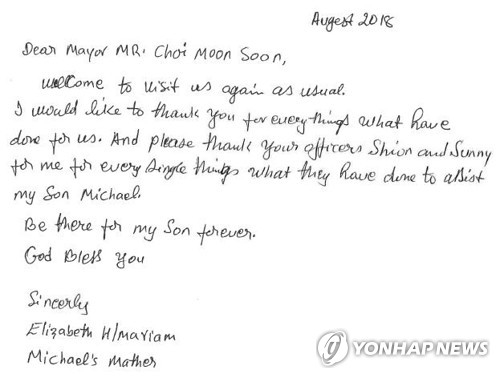 August 2018
Dear Mayor MR. Choi Moon Soon,
welcome to visit us again as usual.
I would like to thank you for everythings what have
done for us. And please thank your officers Shion and Sunny
for me for every single things what they have done to assist
my Son Michael.
Be there for my Son forever.
God Bless You
Sincerly
Elizabeth H/Mariam
Michael's Mather
YONHAP NEWS